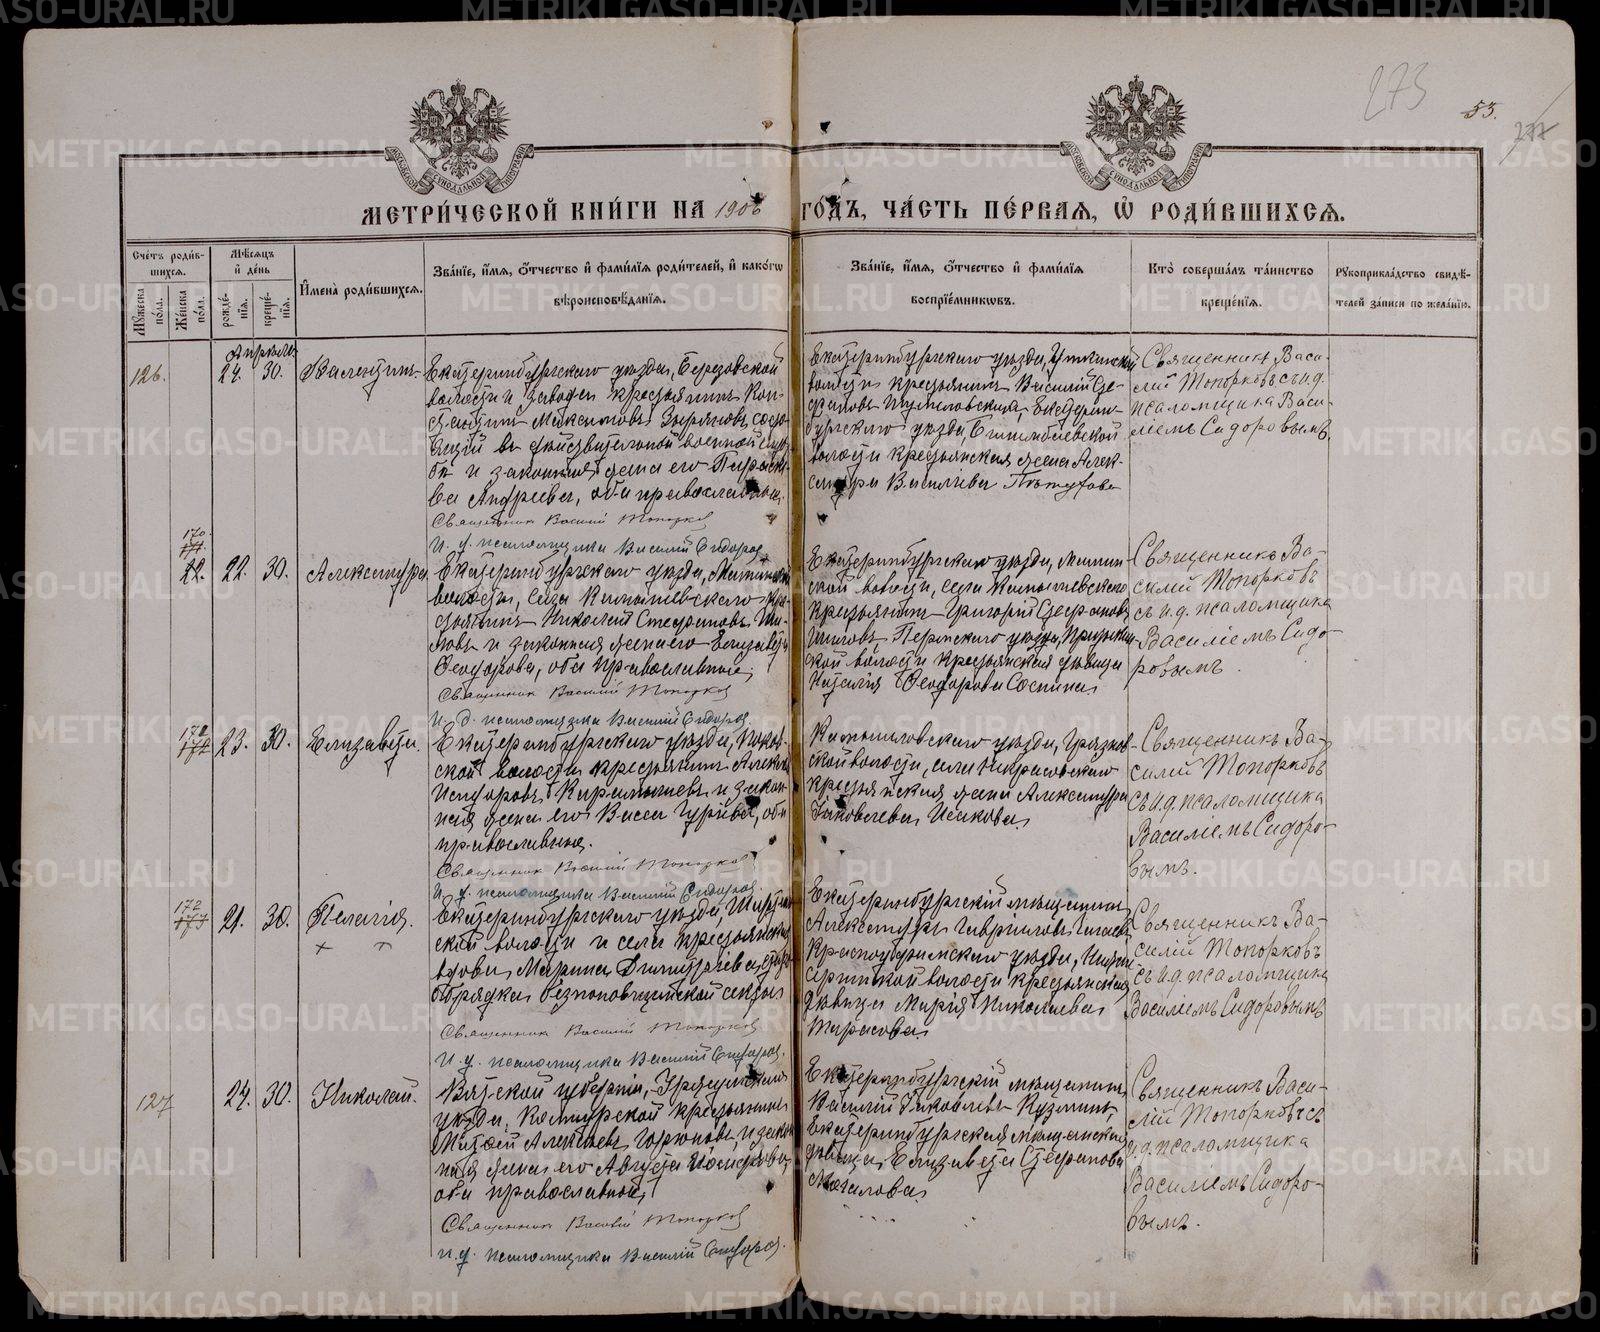 273
53.
277
МОСКОВСКОЙ СѴНОДАЛЬНОЙ ТИПОГРАФІИ
МОСКОВСКОЙ СѴНОДАЛЬНОЙ ТИПОГРАФІИ
МЕТРИ́ЧЕСКОЙ КНИ́ГИ НА 1906 ГО́ДЪ, ЧА́СТЬ ПЕ́РВАЯ, Ѽ РОДИ́ВШИХСЯ.
Сче́тъ роди́в-
шихся.
Мꙋжеска по́ла.
Же́нска по́ла.
Мѣ́сяцъ
и҆ де́нь
рожде́-
нїя.
креще́-
нїя.
И҆мена̀ роди́вшихся.
Зва́нїе, и҆́мя, ѻ҆́тчество и҆ фами́лїя роди́телей, и҆ како́гѡ
вѣроисповѣ́данїя.
Зва́нїе, и҆́мя, ѻ҆́тчество и҆ фами́лїя
воспрїе́мникѡвъ.
Кто̀ соверша́лъ та́инство
креще́нїя.
Рꙋкоприкла́дство свидѣ́-
телей за́писи по жела́нїю.
Апрѣль
126.
24. 30.
Валентинъ
Екатеринбургскаго уѣзда, Березовской
волости и завода крестьянинъ Кон-
стантинъ Максимовъ Зыряновъ, состо-
ящій въ дѣйствительной военной служ-
бѣ и законная жена его Параске-
ва Андреева, оба православные.
Священникъ Василій Топорков
И. д. псаломщика Василій Сидоров
Екатеринбургскаго уѣзда, Уткинской
волости крестьянинъ Василій Сте-
фановъ Екатерин-
бургскаго уѣзда,
волости крестьянская жена Алек-
сандра Васильева
Священникъ Васи-
лій Топорковъ съ и.д.
псаломщика Васи-
ліемъ Сидоровымъ.
170.
171.
22. 30.
Александра
Екатеринбургскаго уѣзда,
волости, села Камышевскаго кре-
стьянинъ Николай Стефановъ Ши-
ловъ и законная жена его Елизавета
Ѳеодорова, оба православные.
Священник Василий Топорков
И. д. псаломщика Василій Сидоров
Екатеринбургскаго уѣзда,
ской волости, села Камышевскаго
крестьянинъ Григорій Стефановъ
Шиловъ Пермскаго уѣзда,
кой волости крестьянская дѣвица
Наталія Ѳеодорова
Священникъ Ва-
силій Топорковъ
съ и.д. псаломщика
Василіемъ Сидо-
ровымъ.
171
172
23. 30.
Елизавета.
Екатеринбургскаго уѣзда, Покров-
ской волости крестьянинъ
и закон-
ная жена его Васса Гурьева, оба
православные.
Священник Василій Топорков
И. д. псаломщика Василій Сидоров.
Камышловскаго уѣзда, Грязнов-
ской волости, села Некрасовскаго
крестьянская жена Александра
Іаковлева Исакова.
Священникъ Ва-
силій Топорковъ
съ и.д. псаломщика
Василіемъ Сидоро-
вымъ.
172
173
21. 30.
Пелагія.
Екатеринбургскаго уѣзда,
ской волости и села крестьянская
вдова Марина Димитріева,
обрядка безпоповщинской секты
Священник Василій Топорков
И. д. псаломщика Василій Сидоров.
Екатеринбургскій мѣщанинъ
Александръ Гавріиловъ
Красноуфимскаго уѣзда, Нижне-
сергинской волости крестьянская
дѣвица Марія Николаева
Тарасова.
Священникъ Ва-
силій Топорковъ
съ и.д. псаломщика
Василіемъ Сидоровымъ
127
24. 30.
Николай.
Вятской губерніи, Уржумскаго
уѣзда, крестьянинъ
Матѳей Алексѣевъ Горюновъ, и закон-
ная жена его Августа Іосифова,
оба православные.
Священник Василій Топорков
И. д. псаломщика Василій Сидоров.
Екатеринбургскій мѣщанинъ
Василій Іаковлевъ Кузминъ,
Екатеринбургская мѣщанская
дѣвица Елизавета Стефанова
Священникъ Васи-
лій Топорковъ съ
и.д. псаломщика
Василіемъ Сидоро-
вымъ.
METRIKI.GASO-URAL.RU